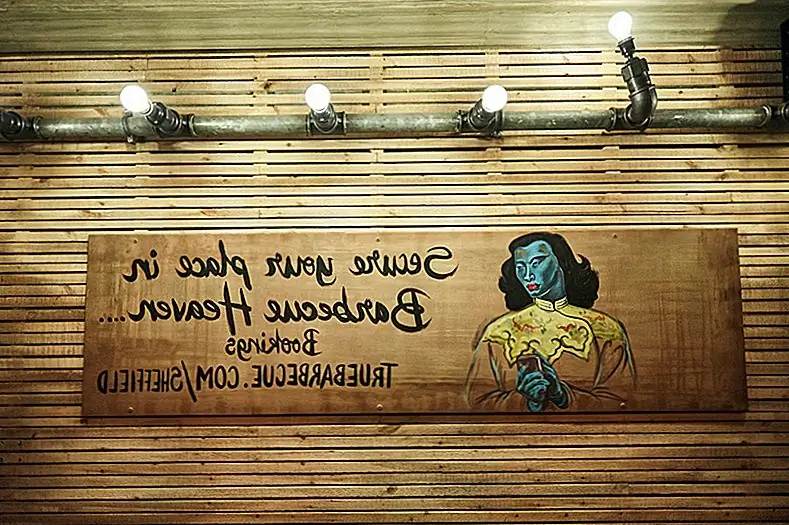 Secure your place in
Barbecue Heaven....
Bookings
TRUEBARBECUE.COM/SHEFFIELD